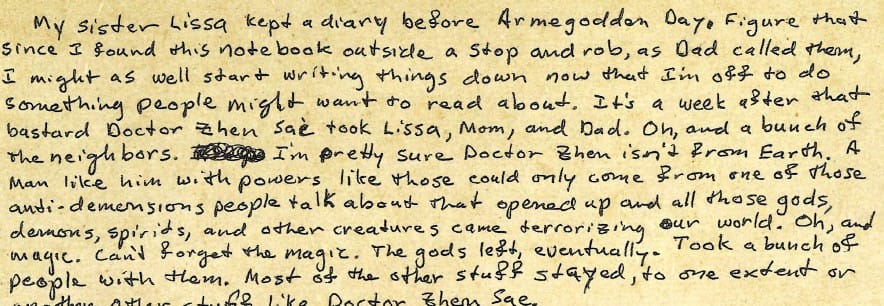 My sister Lissa kept a diary before Armegoddon Day. Figure that
since I found this notebook outside a stop and rob, as Dad called them,
I might as well start writing things down now that I'm off to do
something people might want to read about. It's a week after that
bastard Doctor Zhen Sae took Lissa, Mom, and Dad. Oh, and a bunch of
the neighbors. I'm pretty sure Doctor Zhen isn't from Earth. A
man like him with powers like those could only come from one of those
anti-demensions people talk about that opened up and all those gods,
demons, spirits, and other creatures came terrorizing our world. Oh, and
magic. Can't forget the magic. The gods left, eventually. Took a bunch of
people with them. Most of the other stuff stayed, to one extent or
another other stuff like Doctor Zhen Sae.